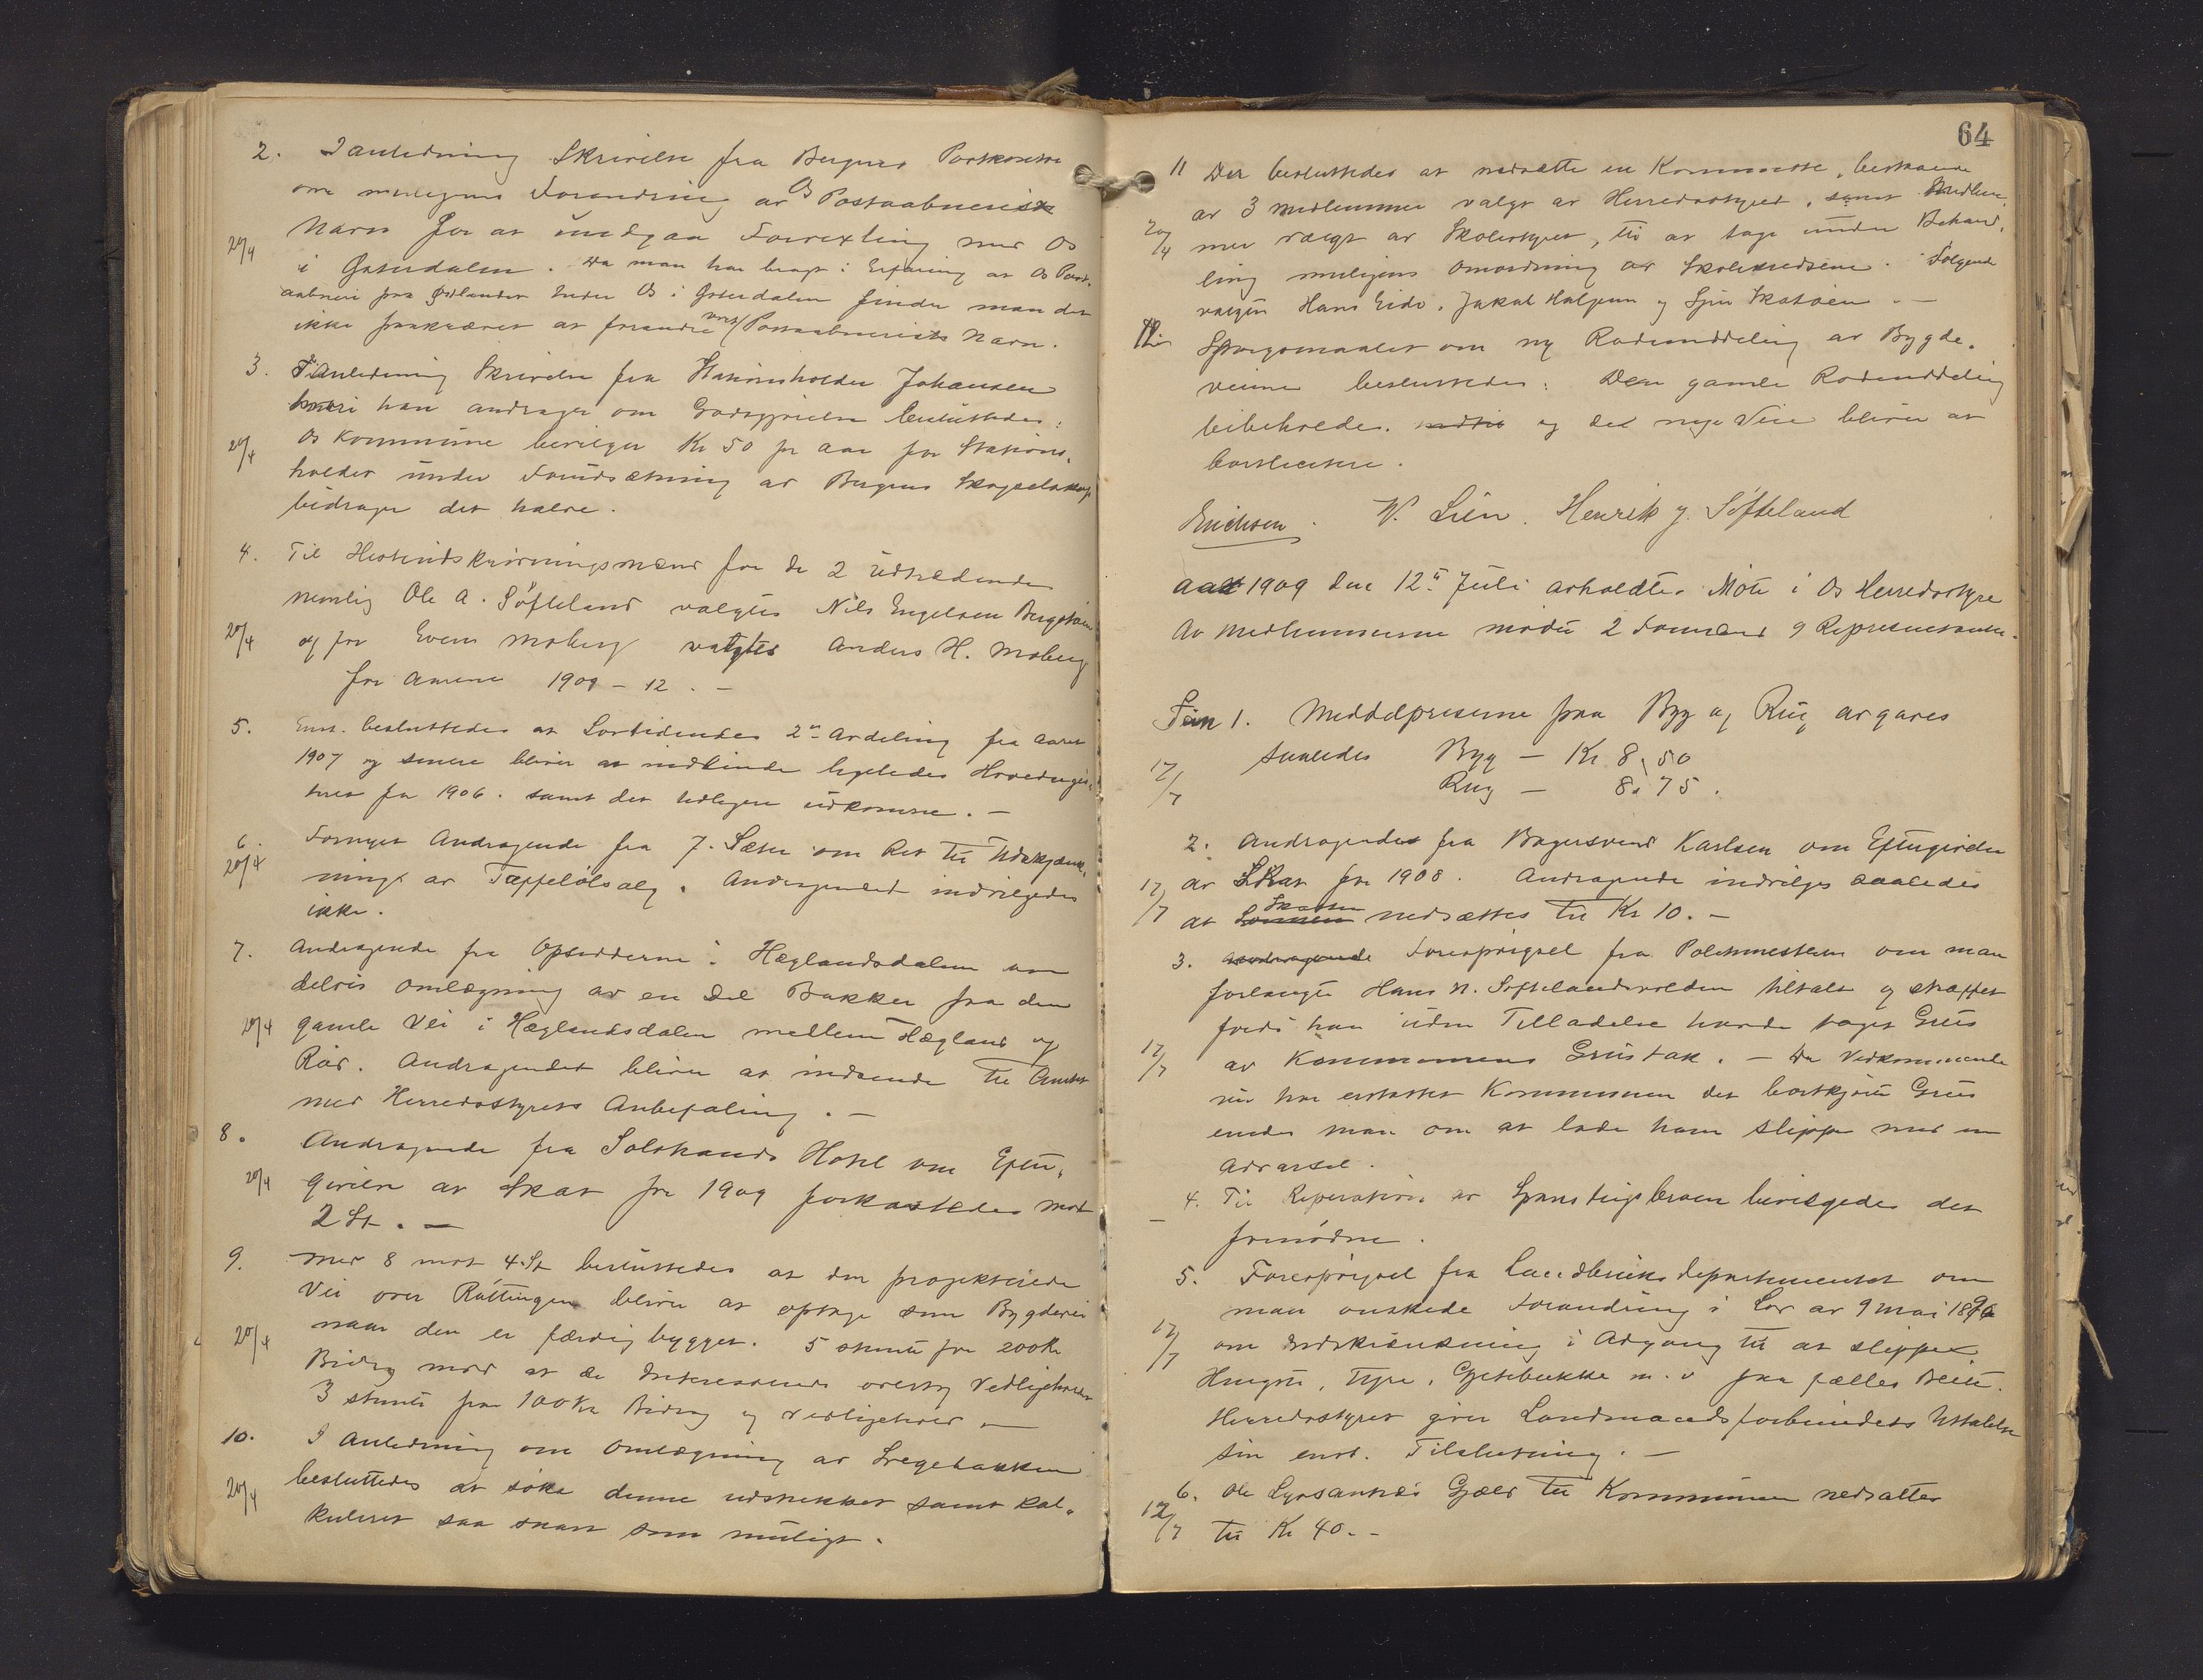 2. I anledning Skrivelse fra Bergens Postkontor
om muligens Forandring av Os Postaabneris
Navn for at undgaa Forvexling med Os
20/4
i Østerdalen. Da man har bragt i Erfaring at Os Post-
aabneri fra Utlandet heder Os i Østerdalen finder man det
ikke paakrævet at forandre vort Postaabneris Navn.
3. I Anledning Skrivelse fra Stationsholder Johansen
hvori han andrager om Godtgjørelse besluttedes:
20/4
Os Kommune bevilger Kr 50 pr aar for Stations-
holder under Forudsætning av Bergens Skysselskap
bidrager det halve.
4. Til Hesteudskrivningsmænd for de 2 udtrædende
nemlig Ole A. Søfteland valgtes Nils Engelsen Bergstøen
20/4
og for Evens Moberg valgtes Anders H. Moberg
for Aarene 1909 – 12. –
5. Enst. besluttedes at Lovtidendes 2n Avdeling fra Aaret
1907 og senere bliver at indbinde ligeledes Hovedregis-
tret fra 1906. samt det tidligere udkomne. –
6. Fornyet Andragende fra J. Sæter om Ret til Udskjænk-
20/4
ning av Tappeølsalg. Andragendet indvilgedes
ikke.
7. Andragende fra Opsidderne i Hæglandsdalen om
delvis Omlægning av en Del Bakker paa den
20/4
gamle Vei i Hæglandsdalen mellem Hægland og
Raad. Andragendet bliver at indsende til Amtet
med Herredsstyrets Anbefaling. –
8. Andragende fra Solstrands Hotel om Efter-
20/4
givelse av Skat for 1909 forkastedes mot
2 St. –
9. Med 8 mot 4 St besluttedes at den projekterede
Vei over Røttingen bliver at optage som Bygdevei
20/4
naar den er færdig bygget. 5 stemte for 200 Kr
Bidrag mod at de Interesserede overtog Vedligeholdet
3 stemte for 100 Kr Bidrag og vedligehold –
10. I Anledning om Omlægning av Sregebakken
20/4
besluttedes at søke denne udstukket samt kal-
kuleret saa snart som muligt.
64
11 Der besluttedes at nedsætte en Kommitte, bestaaende
av 3 medlemmer valgt av Herredsstyret, samt Medlem-
20/4
mer valgt av Skolestyret, til at tage under Behand-
ling muligens Omordning av Skolekredsene. Følgende
valgtes Hans Eide, Jakob Haljem og Sjur Skatøen. –
12. Spørgsmaalet om ny Rodeinddeling av Bygde-
veiene besluttedes: Den gamle Rodeinddeling
bibeholdes. indtil og det nye Veie bliver at
bortlicitere.
Erichsen. N. Lien. Henrik J. Søfteland
Aar 1909 den 12te Juli avholdtes Møte i Os Herredsstyre
Av Medlemmerne mødte 2 Formænd 9 Representanter.
Sak 1. Middelpriserne paa Byg og Rug avgaves
saaledes Byg – Kr 8,50
12/7
Rug – 8,75.
2. Andragendet fra Bagersvend Karlsen om Eftergivelse
av Skat for 1908. Andragende indvilges saaledes
12/7
at Skatten nedsættes til Kr 10. –
3. Andragende Forespørgsel fra Politimesteren om man
forlanger Hans N. Søftelandsvolden tiltalt og straffet
fordi han uden Tilladelse havde taget Grus
12/7
av Kommunens Grustak. – Da Vedkommende
nu har erstattet Kommunen det bortkjørte Grus
enedes man om at lade ham slippe med en
Advarsel.
4. Til Reperation av Spanstigsbroen bevilgedes det
fornødne.
5. Forespørgsel fra Landbruksdepartementet om
man ønskede Forandring i Lov av 9 Mai 1896
12/7
om Indskrænkning i Adgang til at slippe
Hingste, Tyre, Gjetebukke m. v paa fælles Beite.
Herredsstyret giver Landmandsforbundets Uttalelse
sin enst. Tilslutning. –
6. Ole Lysaankrs Gjæld til Kommunen nedsattes
12/7
til Kr 40. –